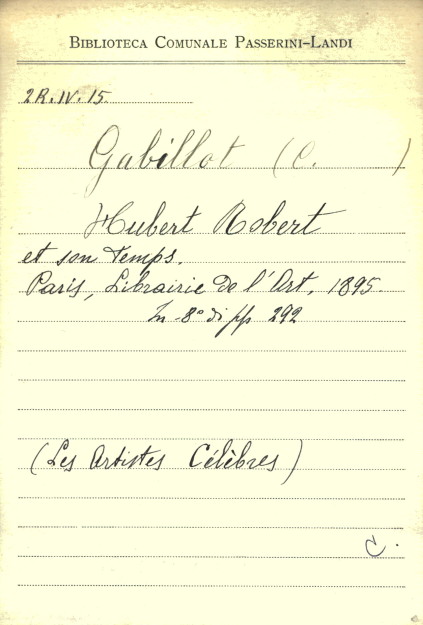 BIBLIOTECA COMUNALE PASSERINI-LANDI
2R.IV.15.
Gabillot (C. )
Hubert Robert
et son temps.
Paris, Librairie de l'Art, 1895.
In-8° di pp 292
(Les Artistes Célèbres)
C.